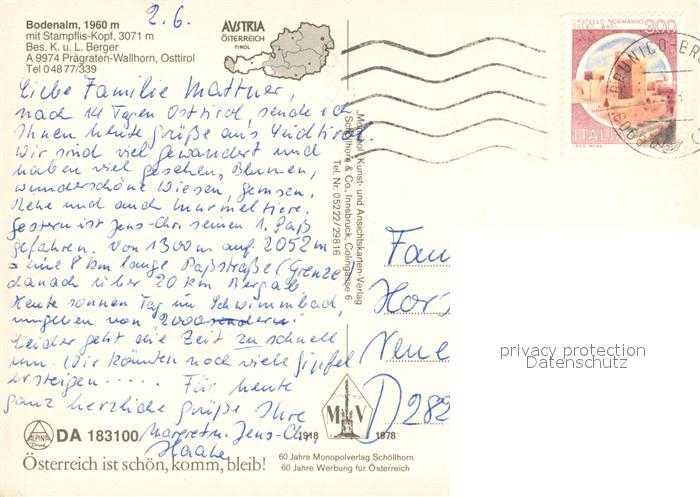 Bodenalm, 1960 m
mit Stampflis-Kopf, 3071 m
Bes. K. u. L. Berger
A 9974 Prägraten-Wallhorn, Osttirol
Tel 0 48 77/339
2.6.
AVSTRIA
ÖSTERREICH
TIROL
Liebe Familie Mattner,
nach 14 Tagen Osttirol, sende ich
Ihnen heute Grüße aus Südtirol.
Wir sind viel gewandert und
haben viel gesehen, Blumen,
wunderschöne Wiesen, Gemsen,
Rehe und auch Murmeltiere.
Gestern ist Jens-Chr. seinen 1. Paß
gefahren. Von 1300 m auf 2052 m
= eine 8 km lange Paßstraße (Grenze)
danach über 20 km Bergab.
Heute sonnen Tag im Schwimmbad,
umgeben von "2000
Leider geht die Zeit zu schnell
um. Wir könnten noch viele Gipfel
ersteigen ..... Für heute
ganz herzliche Grüße Ihre
Margret u. Jens-Chr.
Haake
Monopol, Kunst- und Ansichtskarten-Verlag
Schöllhorn & Co., Innsbruck, Colingasse 6
Tel. Nr. 05222/29816
CASTELLO NORMANNO
SVEVO BARI
300
ITALIA
BRUNICO-BRU
Fam
Hor
Neue
D 282
privacy protection
Datenschutz
ALPINA
DA 183100
M V
1918 1978
60 Jahre Monopolverlag Schöllhorn
60 Jahre Werbung für Österreich
Österreich ist schön, komm, bleib!